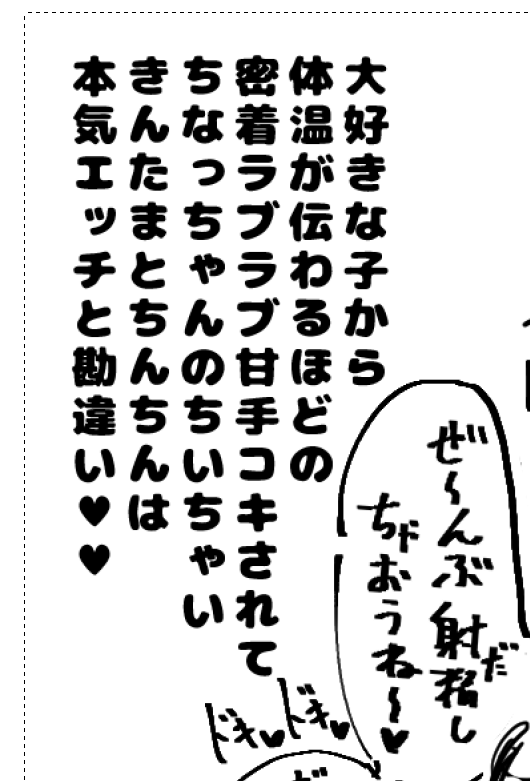 大好きな子から
体温が伝わるほどの
密着ラブラブ甘手コキされて
ちなっちゃんのちいちゃい
きんたまとちんちんは
本気エッチと勘違い♥♥
ぜ～んぶ射精し
だ
ちゃおうね～♥
ドキ♥
ドキ♥